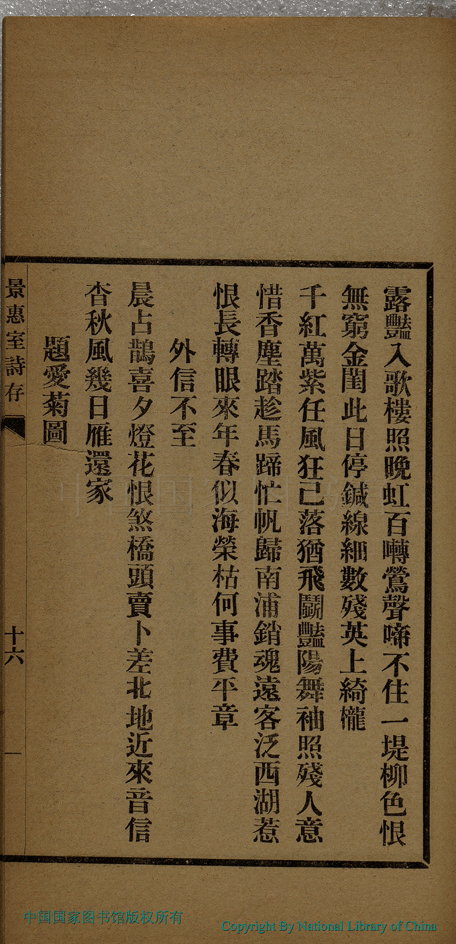 露豔入歌樓照晚虹百囀鶯聲啼不住一堤柳色恨
無窮金閨此日停鍼線細數殘英上綺櫳
千紅萬紫任風狂已落猶飛鬭豔陽舞袖照殘人意
惜香塵踏趁馬蹄忙帆歸南浦銷魂遠客泛西湖惹
恨長轉眼來年春似海榮枯何事費平章
外信不至
晨占鵲喜夕燈花恨煞橋頭賣卜差北地近來音信
杳秋風幾日雁還家
題愛菊圖
景惠室詩存
十六
中国国家图书馆版权所有
Copyright By National Library of China